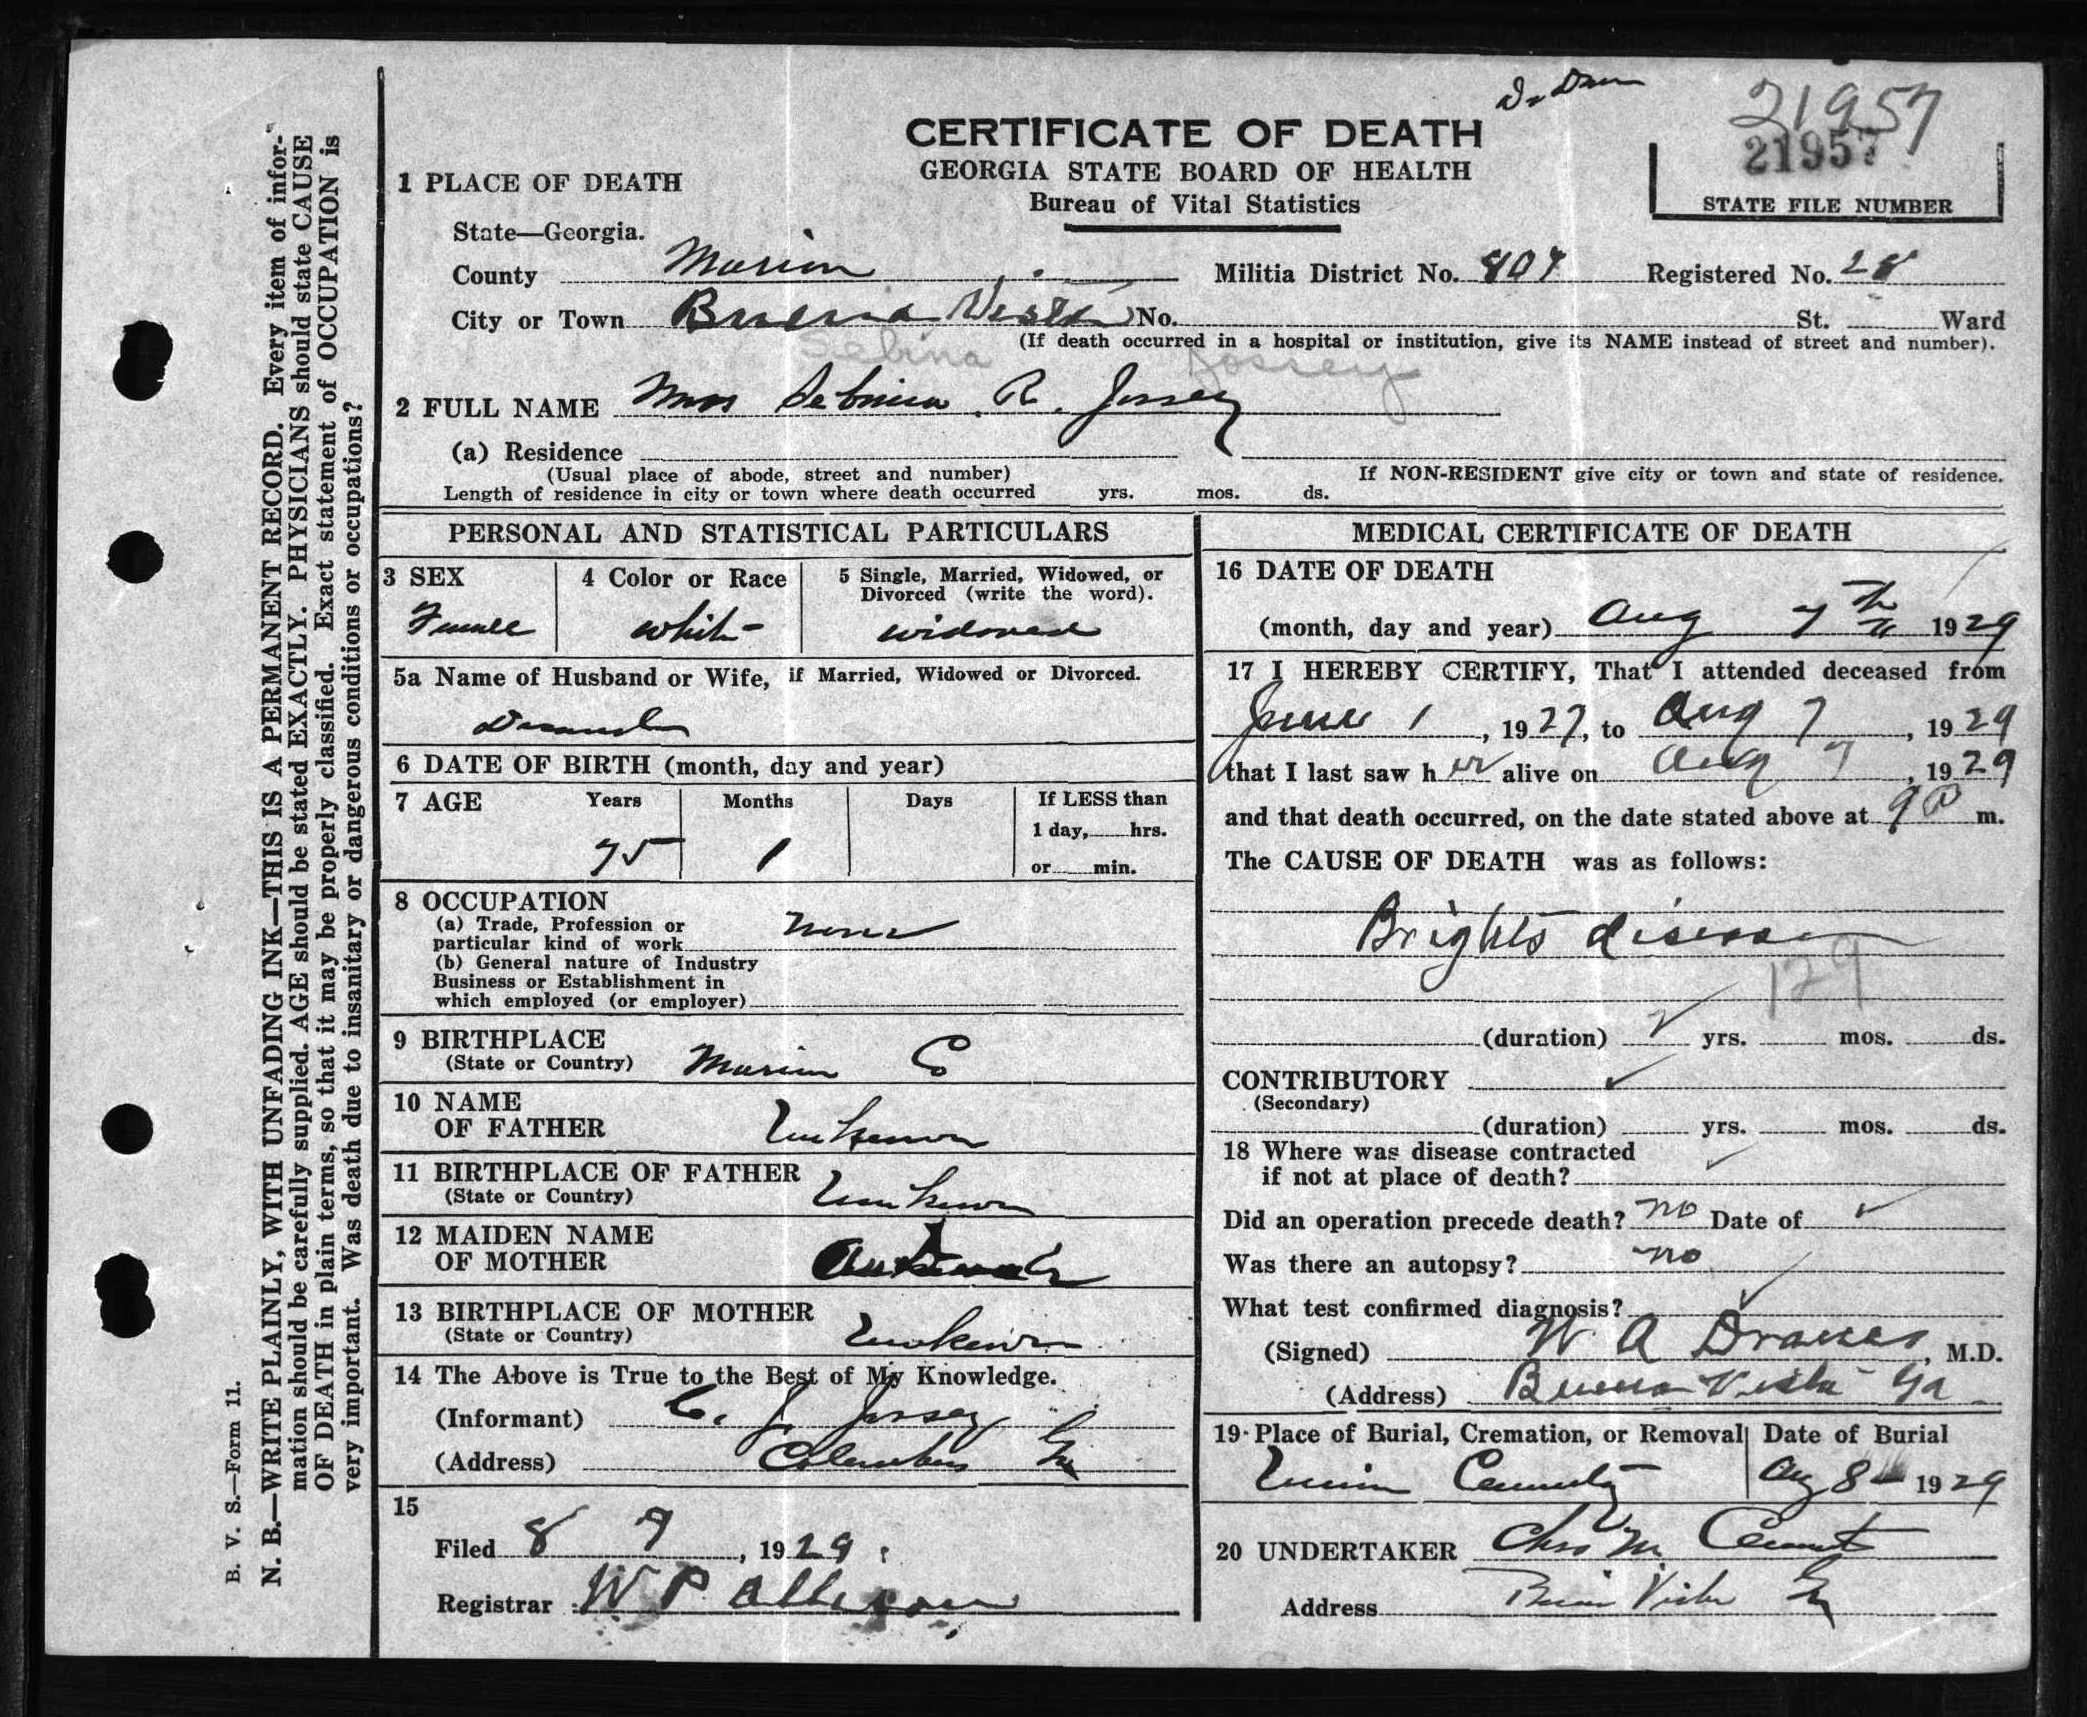 Dr Dren
21957
CERTIFICATE OF DEATH
21957
GEORGIA STATE BOARD OF HEALTH
Bureau of Vital Statistics
STATE FILE NUMBER
1 PLACE OF DEATH
State—Georgia.
County Marion Militia District No. 807 Registered No. 28
City or Town Buena Vista No. St. Ward
(If death occurred in a hospital or institution, give its NAME instead of street and number).
Sebina Jossey
2 FULL NAME Mrs Sebina R. Jossey
(a) Residence
(Usual place of abode, street and number) If NON-RESIDENT give city or town and state of residence.
Length of residence in city or town where death occurred yrs. mos. ds.
PERSONAL AND STATISTICAL PARTICULARS
3 SEX 4 Color or Race 5 Single, Married, Widowed, or
Divorced (write the word).
Female white widowed
5a Name of Husband or Wife, if Married, Widowed or Divorced.
6 DATE OF BIRTH (month, day and year)
7 AGE Years Months Days If LESS than
1 day, hrs.
75 1 or min.
8 OCCUPATION
(a) Trade, Profession or
particular kind of work none
(b) General nature of Industry
Business or Establishment in
which employed (or employer)
9 BIRTHPLACE
(State or Country) Marion Co
10 NAME
OF FATHER Unknown
11 BIRTHPLACE OF FATHER
(State or Country) Unknown
12 MAIDEN NAME
OF MOTHER
13 BIRTHPLACE OF MOTHER
(State or Country) Unknown
14 The Above is True to the Best of My Knowledge.
(Informant) C. J. Jossey
(Address) Columbus Ga
15
Filed 8 9, 1929
Registrar W P
MEDICAL CERTIFICATE OF DEATH
16 DATE OF DEATH
(month, day and year) Aug 7th 1929
17 I HEREBY CERTIFY, That I attended deceased from
June 1, 1927, to Aug 7, 1929
that I last saw her alive on Aug 7, 1929
and that death occurred, on the date stated above at 9 P m.
The CAUSE OF DEATH was as follows:
Brights disease
129
(duration) yrs. mos. ds.
CONTRIBUTORY
(Secondary)
(duration) yrs. mos. ds.
18 Where was disease contracted
if not at place of death?
Did an operation precede death? no Date of
Was there an autopsy? no
What test confirmed diagnosis?
(Signed) W A, M.D.
(Address) Buena Vista Ga
19 Place of Burial, Cremation, or Removal Date of Burial
Cemetery Aug 8 1929
20 UNDERTAKER Chas M.
Address Buena Vista Ga
B. V. S.—Form 11.
N. B.—WRITE PLAINLY, WITH UNFADING INK—THIS IS A PERMANENT RECORD. Every item of infor-
mation should be carefully supplied. AGE should be stated EXACTLY. PHYSICIANS should state CAUSE
OF DEATH in plain terms, so that it may be properly classified. Exact statement of OCCUPATION is
very important. Was death due to insanitary or dangerous conditions or occupations?